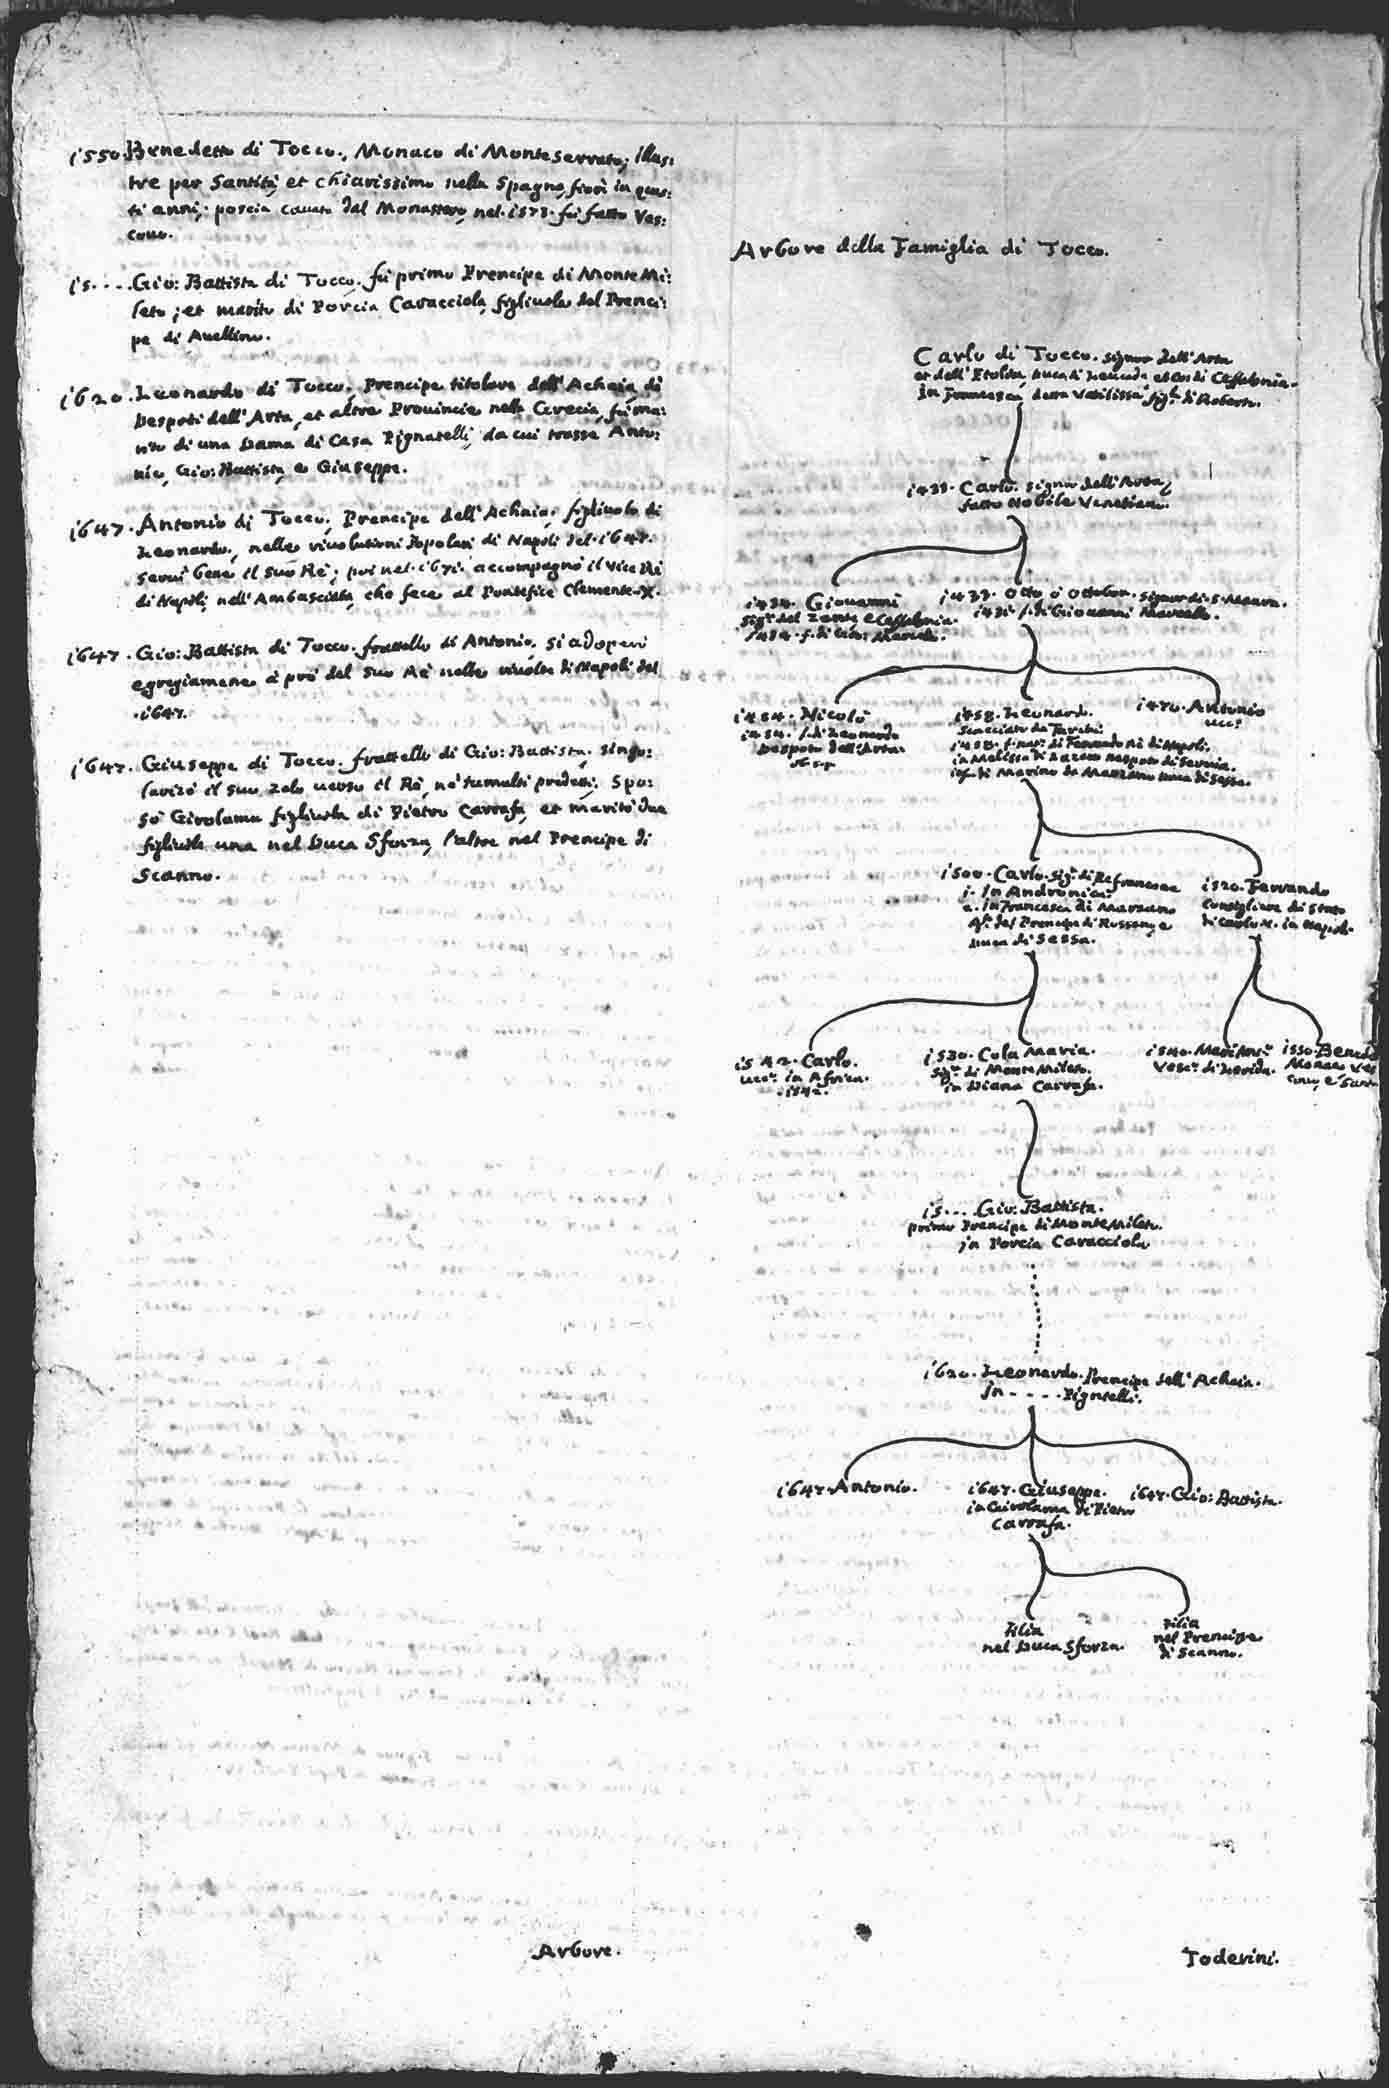 i550. Benedetto di Tocco, Monaco di Monteserrato, illus:
tre per Santità, et chiarissimo nella Spagna, fiorì in ques:
ti anni; poscia cavato dal Monastero, nel 1573. fù fatto Ves:
covo.
i5.... Gio: Battista di Tocco, fù primo Prencipe di Monte Mi:
leto; et marito di Porcia Caracciola, figliuola del Prenci:
pe di Avellino.
i620. Leonardo di Tocco, Prencipe titolare dell'Achaia, di
Despoti dell'Arta, et altre Provincie nella Grecia, fù ma:
rito di una Dama di Casa Pignatelli, da cui trasse Anto:
nio, Gio: Battista, e Giuseppe.
i647. Antonio di Tocco, Prencipe dell'Achaia, figliuolo di
Leonardo, nelle rivolutioni Popolari di Napoli del 1647.
servì bene il suo Rè; poi nel 1671. accompagnò il Vice Rè
di Napoli, nell'Ambasciata, che fece al Pontefice Clemente X.
i647. Gio: Battista di Tocco, frattello di Antonio, si adoperò
egregiamente à prò del suo Rè nelle rivolte di Napoli del
1647.
i647. Giuseppe di Tocco, frattello di Gio: Battista, singo:
larizò il suo zelo verso il Rè, ne' tumulti predetti. Spo:
sò Girolama figliuola di Pietro Carrafa, et maritò due
figliuole una nel Duca Sforza, l'altra nel Prencipe di
Scanno.
Arbore.
Arbore della Famiglia di Tocco.
Carlo di Tocco. signor dell'Arta
et dell'Etolia, Duca di Leucada, et Co: di Ceffalonia.
In Francesca, detta Vasilissa, figl.a di
i433. Carlo. signor dell'Arta,
fatto Nobile Venetiano.
Giovanni
sig.r del Zante e Ceffalonia.
Otto ò Ottobon. signor di S. Maura.
f. di Giovanni Marcello.
Nicolò
f. di Leonardo
Despoto dell'Arta.
i458. Leonardo.
Scacciato da Turchi.
di Ferrando Rè di Napoli.
in Melissa di Lazaro Despoto di Servia.
di Marino da Marzano Duca di Sessa.
i470. Antonio
ucc.o
i500. Carlo. sig.r di Refrancore
i. In Andronica
2. In Francesca di Marzano
del Prencipe di Rossano, e
Duca di Sessa.
i520. Ferrando
Consigliere di Stato
di Carlo V. in Napoli.
i542. Carlo.
ucc.o in Africa.
1542.
i530. Cola Maria.
Sig.r di Monte Mileto.
in Diana Carrafa.
i540.
Vesc.o di Lerida.
i550. Bened
Monaco Ves
covo, e Santo
i5.... Gio: Battista.
primo Prencipe di Monte Mileto.
in Porcia Caracciola
i620. Leonardo. Prencipe dell'Achaia.
In ..... Pignatelli.
i647. Antonio.
i647. Giuseppe.
in Girolama di Pietro
Carrafa.
i647. Gio: Battista.
Filia
nel Duca Sforza.
Filia
nel Prencipe
di Scanno.
Toderini.